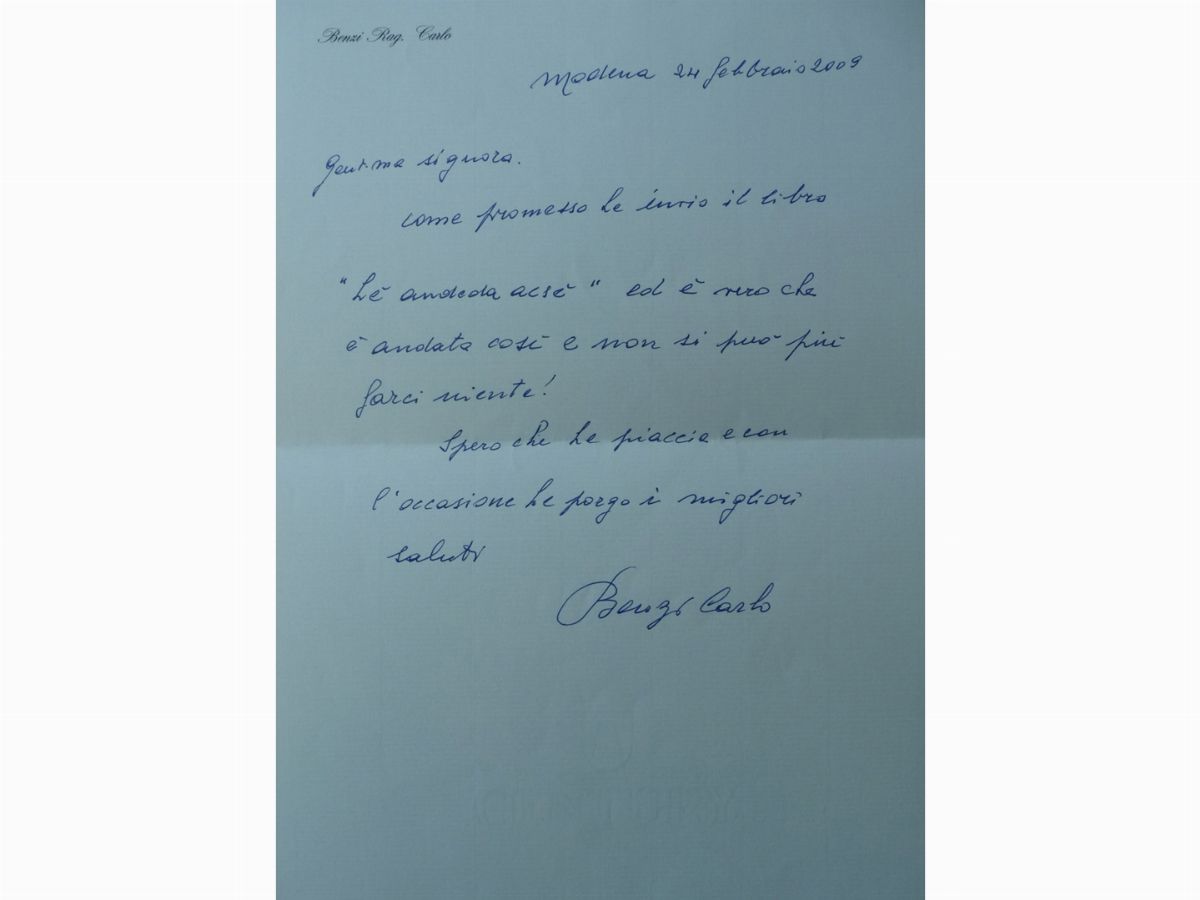 Benzi Rag. Carlo
Modena 24 febbraio 2009
Gent.ma signora.
come promesso Le invio il libro
"L'è andeda acsè" ed è vero che
è andata così e non si può più
farci niente!
Spero che Le piaccia e con
l'occasione Le porgo i migliori
saluti
Benzi Carlo